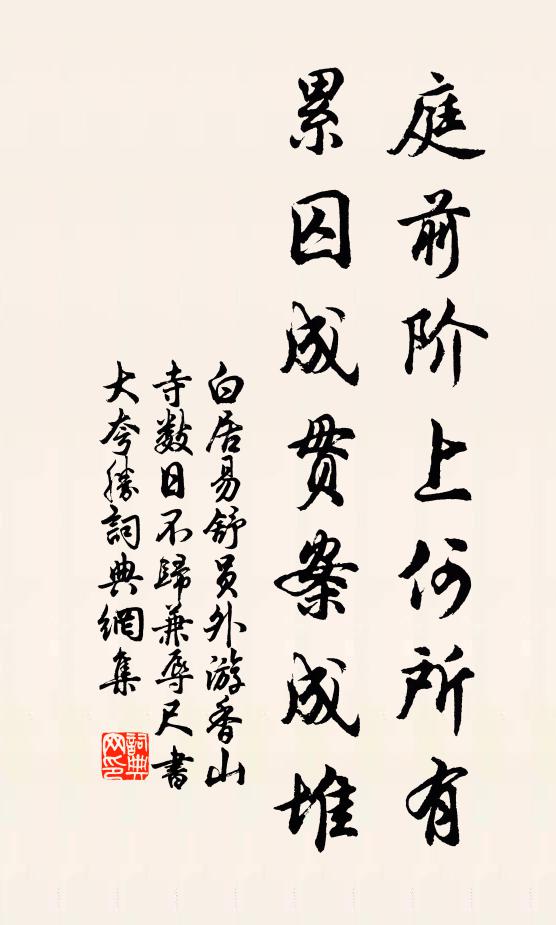 庭前阶上何所有
累囚成贯案成堆
白居易舒员外游香山
寺数日不歸兼辱尺書
大夸勝詞典網集
詞典
网印